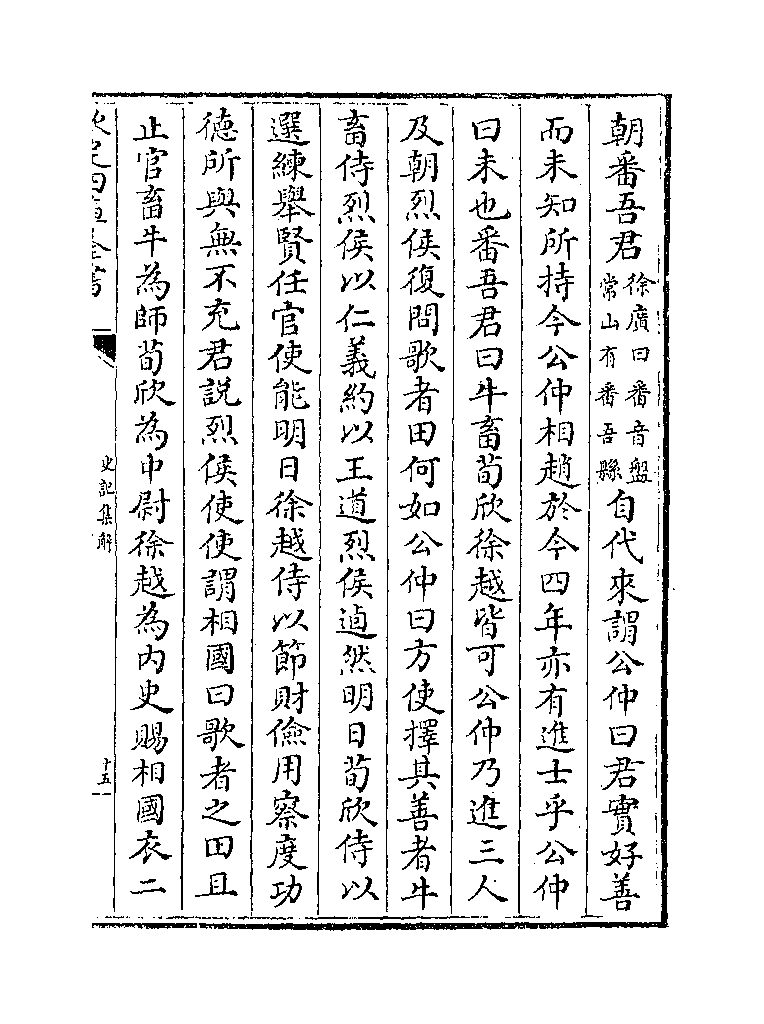 朝番吾君徐廣曰番音盤常山有番吾縣自代來謂公仲曰君實好善
而未知所持今公仲相趙於今四年亦有進士乎公仲
曰未也番吾君曰牛畜荀欣徐越皆可公仲乃進三人
及朝烈侯復問歌者田何如公仲曰方使擇其善者牛
畜侍烈侯以仁義約以王道烈侯逌然明日荀欣侍以
選練舉賢任官使能明日徐越侍以節財儉用察度功
德所與無不充君説烈侯使使謂相國曰歌者之田且
止官畜牛為師荀欣為中尉徐越為内史賜相國衣二
欽定四庫全書
史記集解
十五